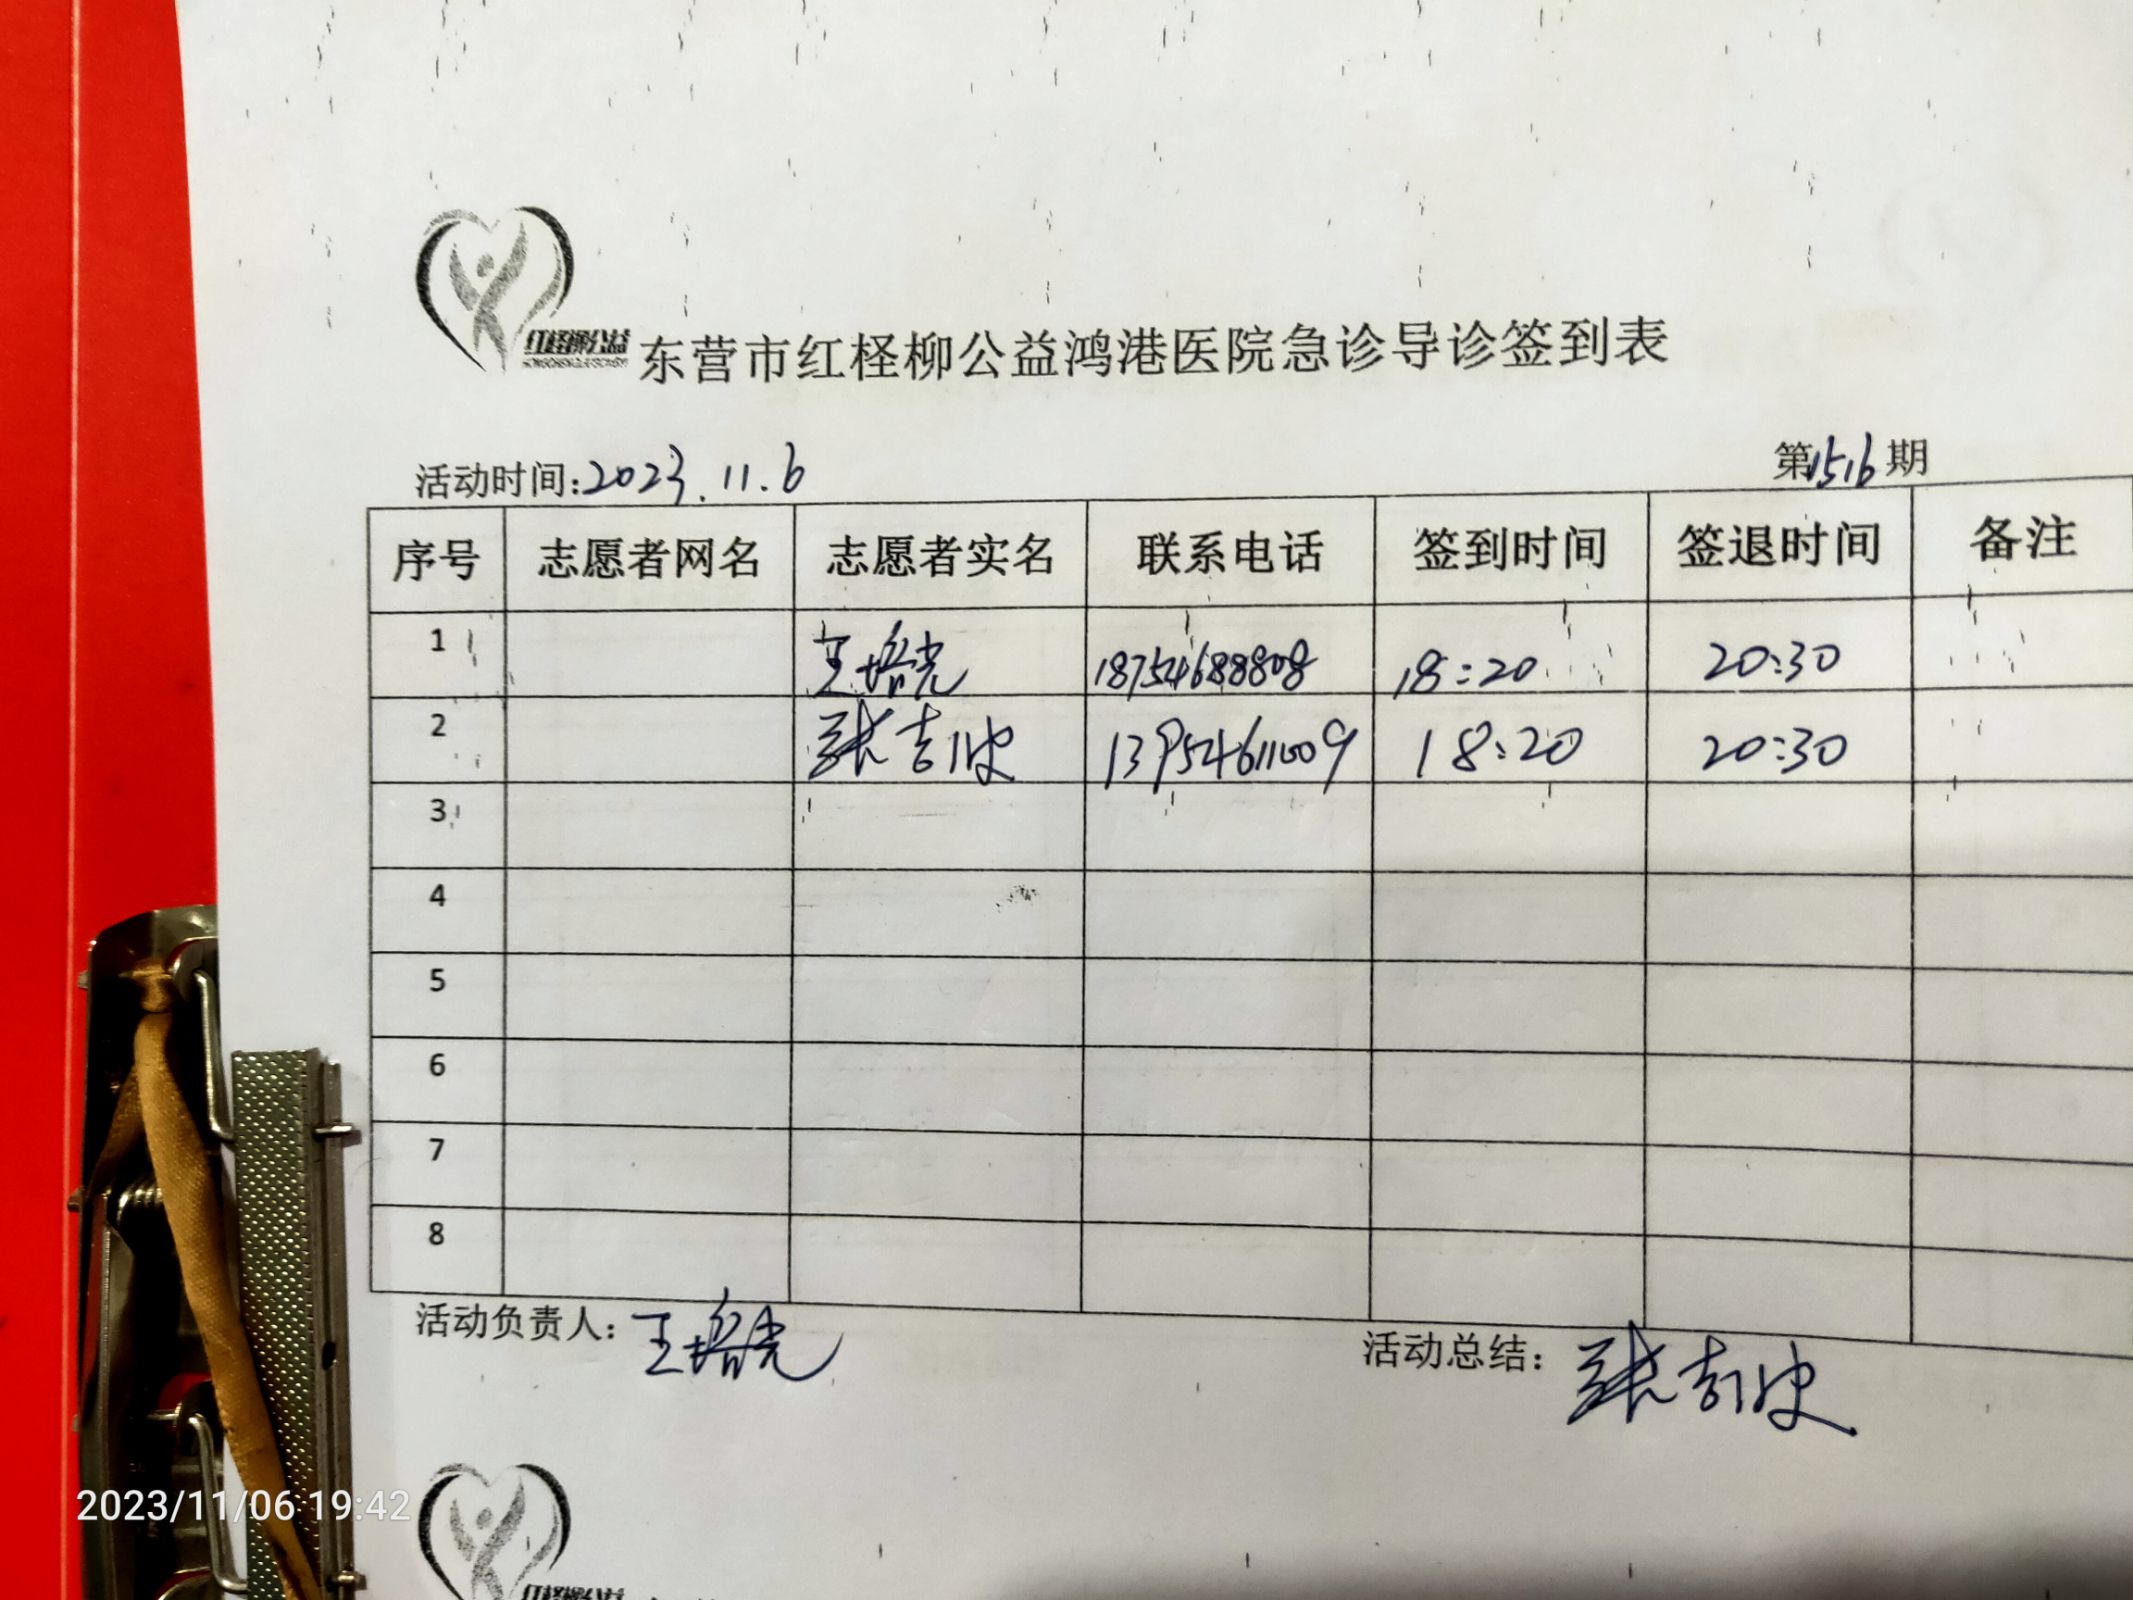 红柽柳公益
东营市红柽柳公益鸿港医院急诊导诊签到表
活动时间:2023.11.6 第1516期
序号 志愿者网名 志愿者实名 联系电话 签到时间 签退时间 备注
1 王培光 18754688808 18:20 20:30
2 张吉波 13954611009 18:20 20:30
3
4
5
6
7
8
活动负责人:王培光 活动总结:张吉波
2023/11/06 19:42
红柽柳公益